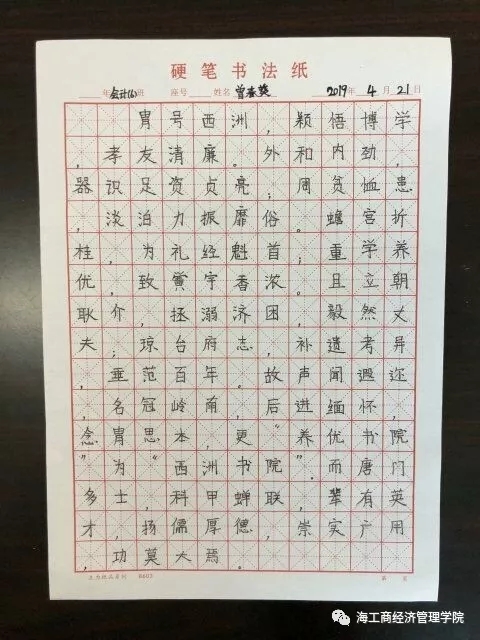 硬笔书法纸
年 会计(6) 班 座号 姓名 曾春 2019年4月21日
胄号西洲，颖悟博学
，孝友清廉。外和内劲，
器识足资贞亮；周贫恤患
，淡泊力振靡俗。蟾宫折
桂，为礼经魁首；重学养
优，致黉宇香浓。且立朝
耿介，拯溺济困，毅然丈
夫；琼台府志，补遗考异
，垂范百年。故声闻遐迩
，名冠岭南，后进缅怀，
念胄思本，更“养优书院
”为“西洲书院”。而唐门
多士，科甲蝉联，辈有英
才，扬儒厚德，崇实广用
，功莫大焉。
8603 第 页
海工商经济管理学院